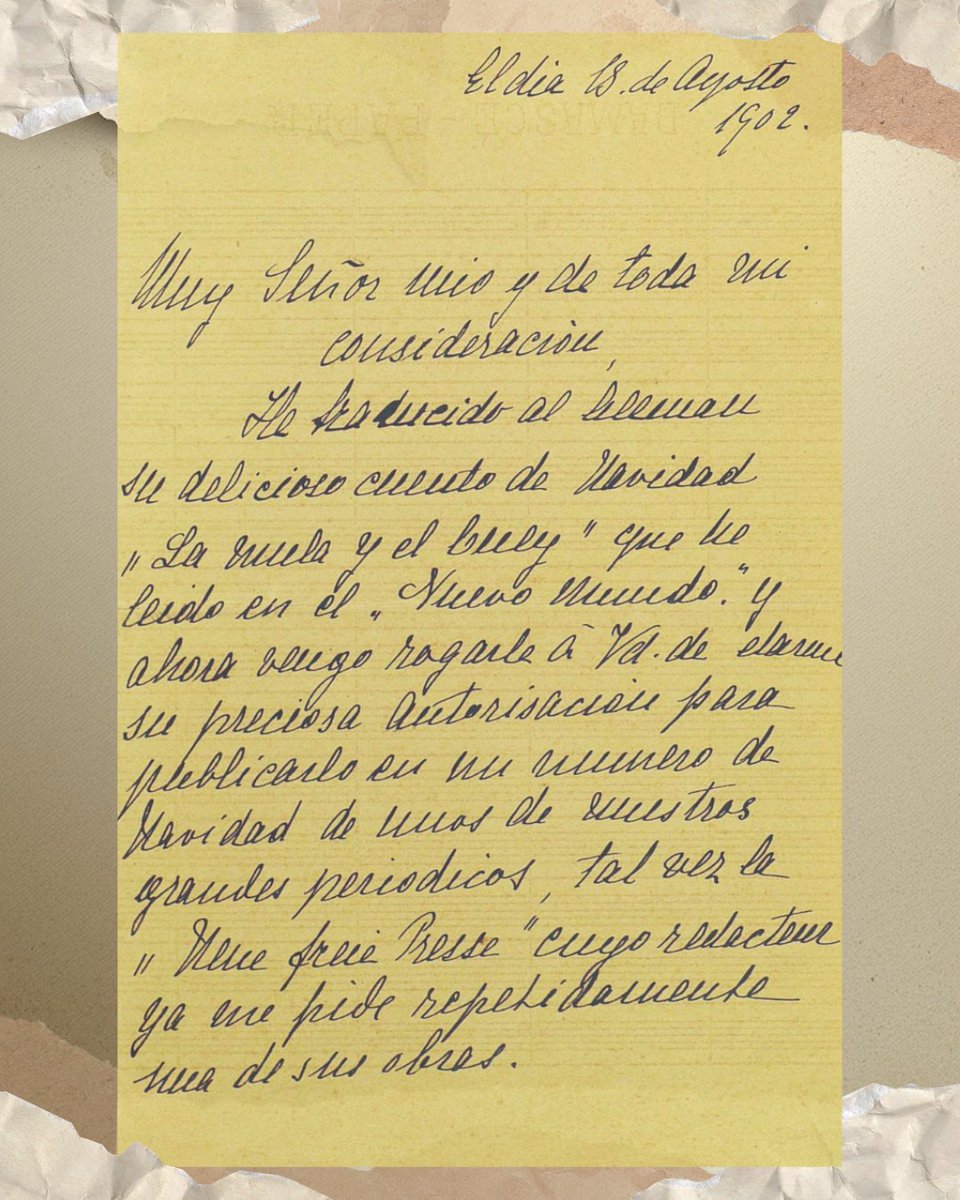 El dia 18. de Agosto
1902.
Muy Señor mio y de toda mi
consideraciòn,
He traducido al aleman
su delicioso cuento de Navidad
„La mula y el buey" que he
leido en el „Nuevo mundo." y
ahora vengo rogarle à Vd. de
su preciosa autorisaciòn para
publicarlo en un numero de
Navidad de unos de nuestros
grandes periodicos, tal vez la
„Neue freie Presse" cuyo redacteur
ya me pide repetidamente
una de sus obras.